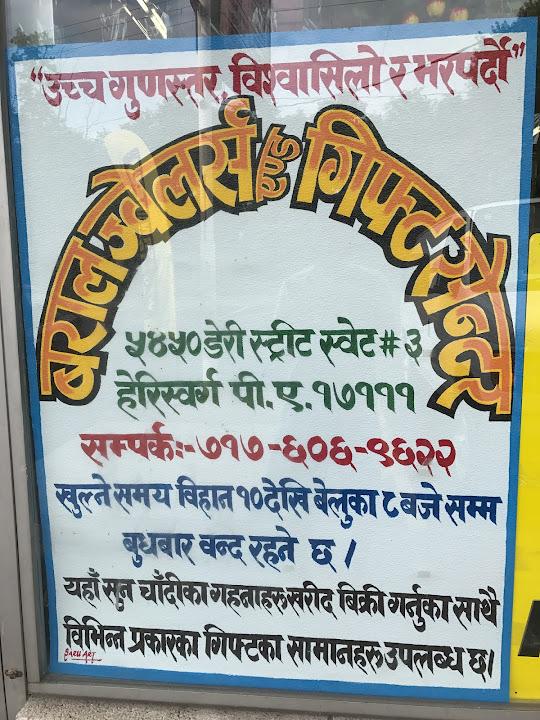 "उच्च गुणस्तर, विश्वासिलो र भरपर्दो"
बराल ज्वेलर्स एण्ड गिफ्ट सेन्टर
५४५० डेरी स्ट्रीट स्वेट # ३
हेरिस्वर्ग पी.ए. १७१११
सम्पर्क:-७१७-६०६-९६२२
खुल्ने समय बिहान १० देखि बेलुका ८ बजे सम्म
बुधबार वन्द रहने छ ।
यहाँ सुन चाँदीका गहनाहरू खरीद बिक्री गर्नुका साथै
विभिन्न प्रकारका गिफ्टका सामानहरू उपलब्ध छ।
SARU ART